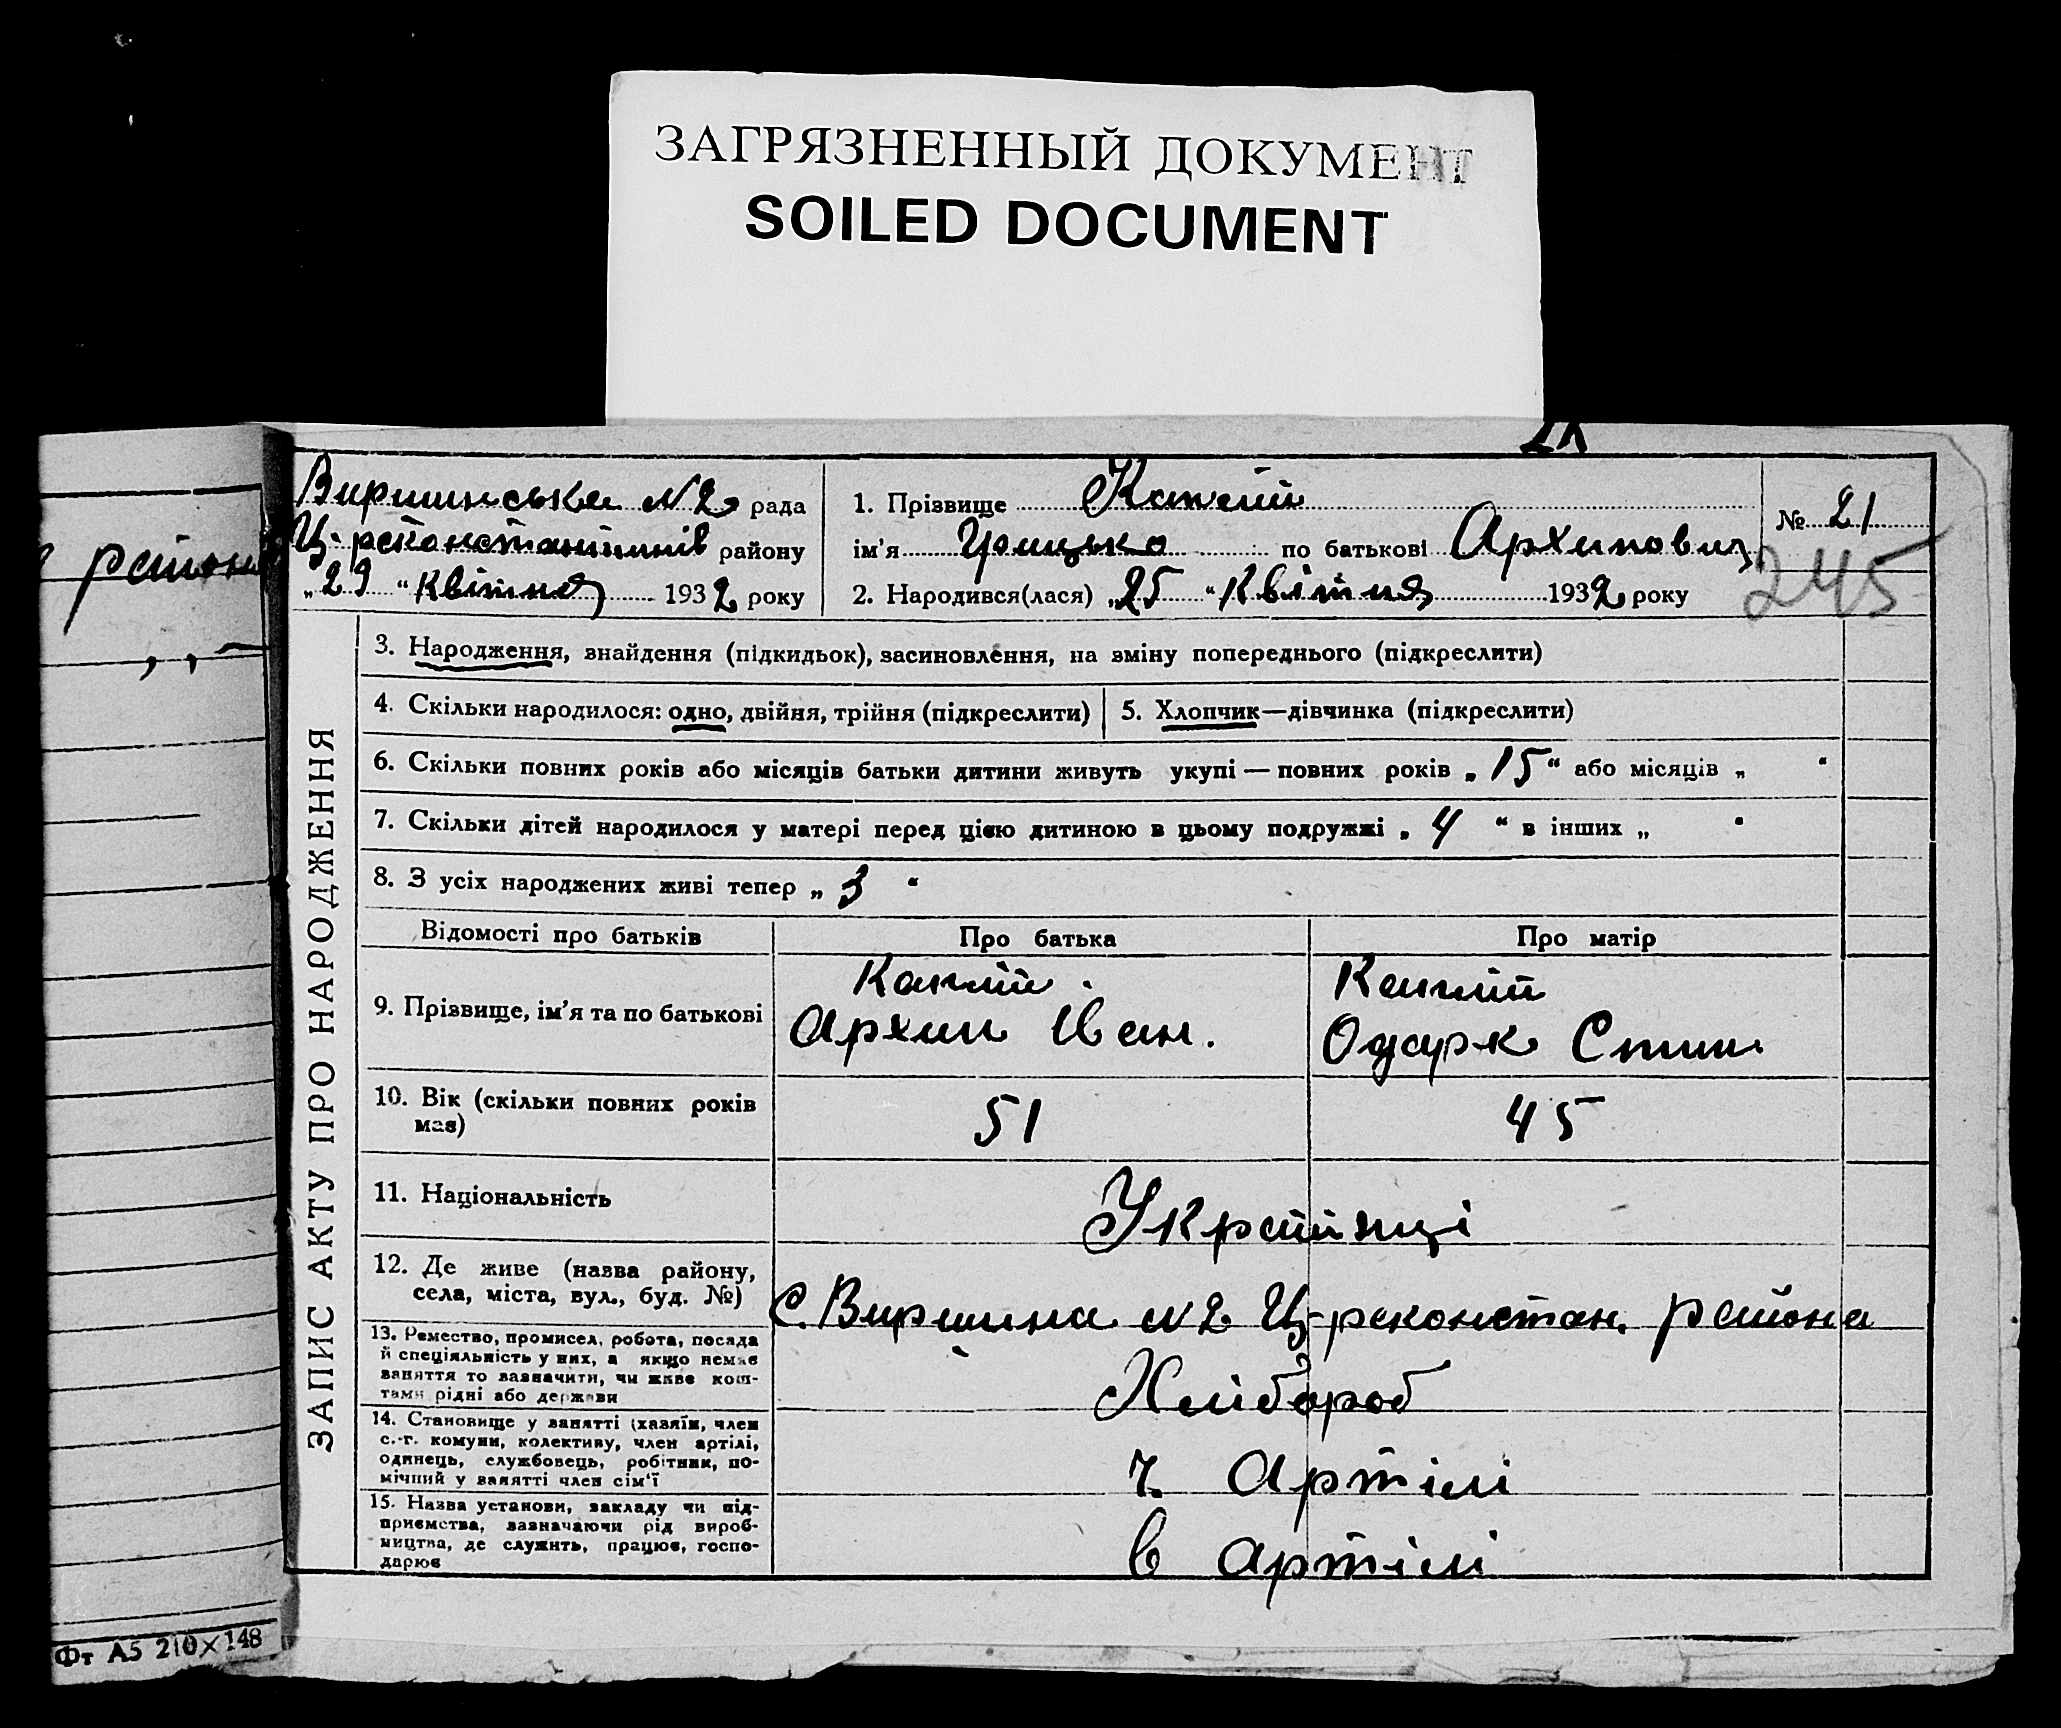 ЗАГРЯЗНЕННЫЙ ДОКУМЕНТ
SOILED DOCUMENT
района
Виршинська №2 рада
району
„29“ Квітня 1932 року
1. Прізвище
ім'я Грицько по батькові Архипович
2. Народився(лася) „25“ Квітня 1932 року
№ 21
245
ЗАПИС АКТУ ПРО НАРОДЖЕННЯ
3. Народження, знайдення (підкидьок), засиновлення, на зміну попереднього (підкреслити)
4. Скільки народилося: одно, двійня, трійня (підкреслити)
5. Хлопчик—дівчинка (підкреслити)
6. Скільки повних років або місяців батьки дитини живуть укупі — повних років „15“ або місяців „ “
7. Скільки дітей народилося у матері перед цією дитиною в цьому подружжі „4“ в інших „ “
8. З усіх народжених живі тепер „3“
Відомості про батьків
Про батька
Про матір
9. Прізвище, ім'я та по батькові
Архип Іван.
Одарк
10. Вік (скільки повних років
має)
51
45
11. Національність
Українці
12. Де живе (назва району,
села, міста, вул., буд. №)
С. Виршина №2 Ц-реконстан. района
13. Ремество, промисел, робота, посада
й спеціяльність у них, а якщо немає
заняття то зазначити, чи живе кош-
тами рідні або держави
Хлібороб
14. Становище у занятті (хазяїн, член
с.-г. комуни, колективу, член артілі,
одинець, службовець, робітник, по-
мічний у занятті член сім'ї
ч. Артілі
15. Назва установи, закладу чи під-
приємства, зазначаючи рід вироб-
ництва, де служить, працює, госпо-
дарює
в артілі
Фт А5 210×148